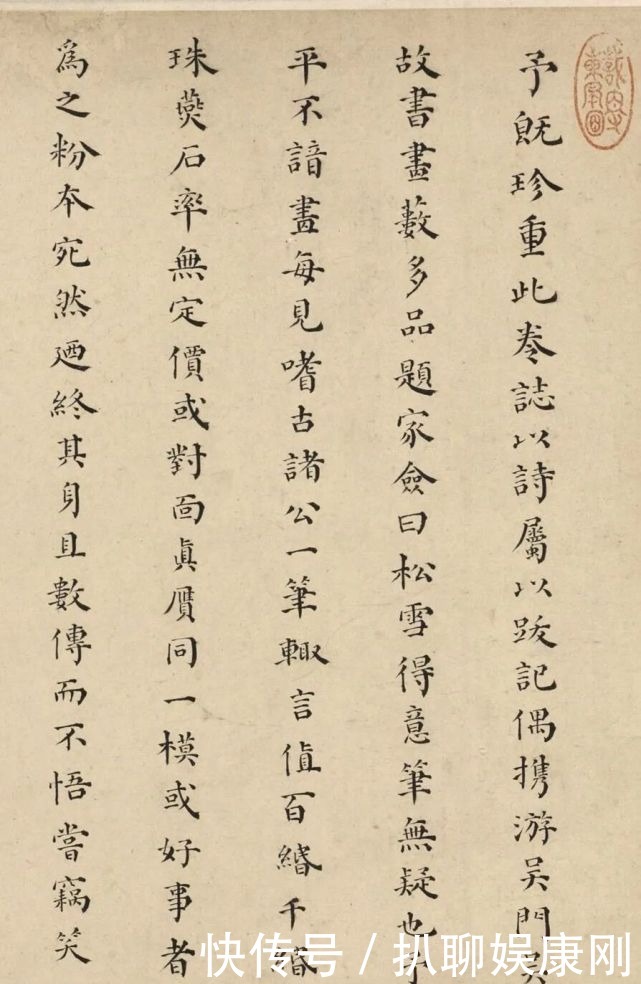 予旣珍重此卷誌以詩屬以跋記偶携游吴門吴
故書畫藪多品題家僉曰松雪得意筆無疑也予
平不諳畫每見嗜古諸公一筆輙言值百緡千緡
珠燕石率無定價或對面眞贋同一模或好事者
爲之粉夲宛然廼終其身且數傳而不悟嘗竊笑
快传号 / 扒聊娱康刚